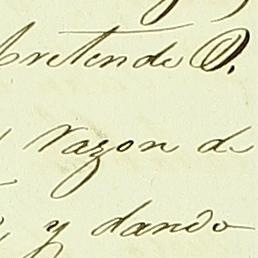 Pretende D.
razon de
y dando